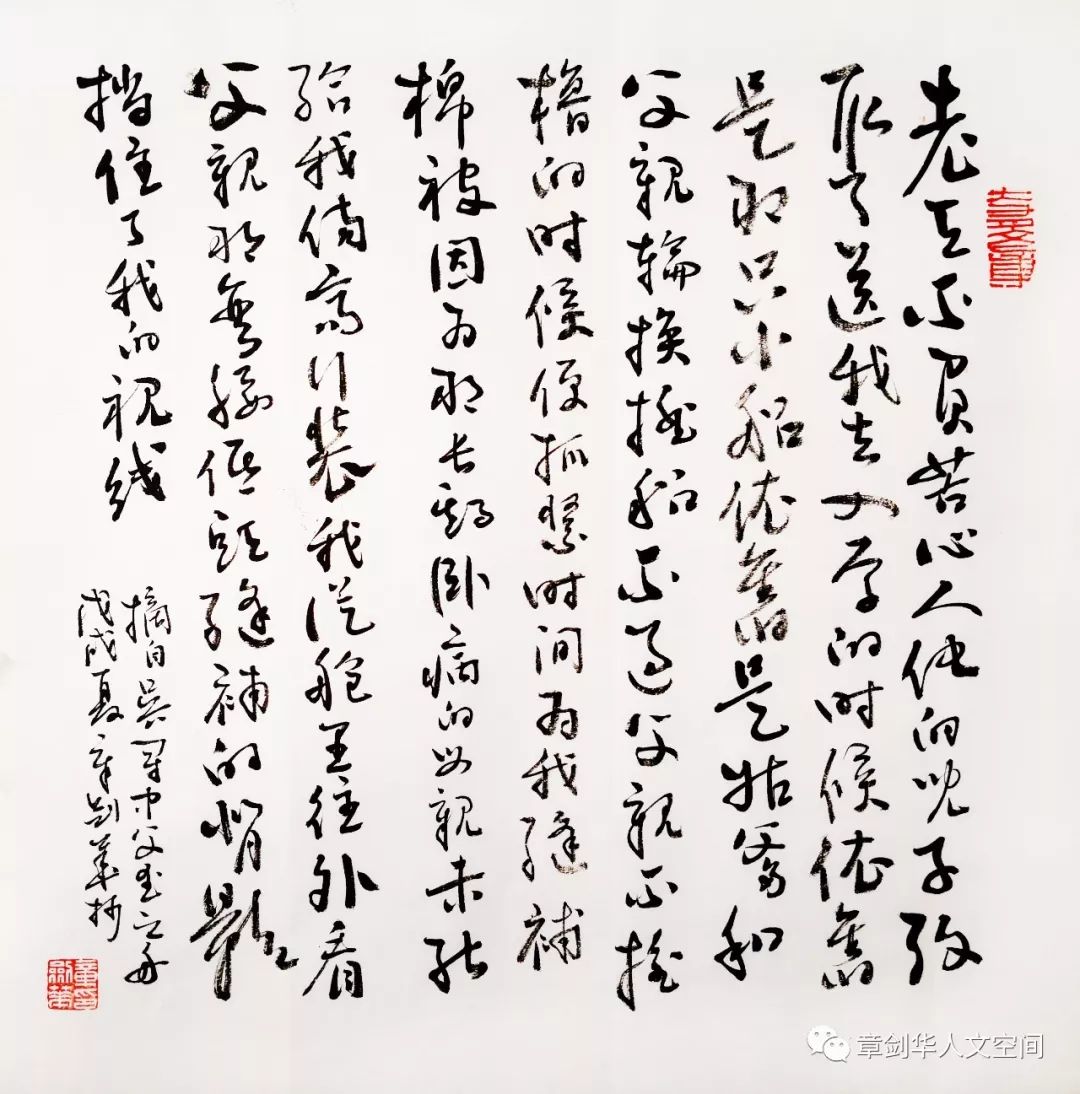 老天不负苦心人他的儿子考
取了送我去入学的时候依旧
是那只小船依旧是姑爹和
父亲轮换摇船不过父亲不摇
橹的时候便抓紧时间为我缝补
棉被因为那长期卧病的母亲未能
给我备齐行装我从舱里往外看
父亲那弯腰低头缝补的背影
挡住了我的视线
摘自吴冠中父爱之舟
戊戌夏章剑华抄
章剑华人文空间